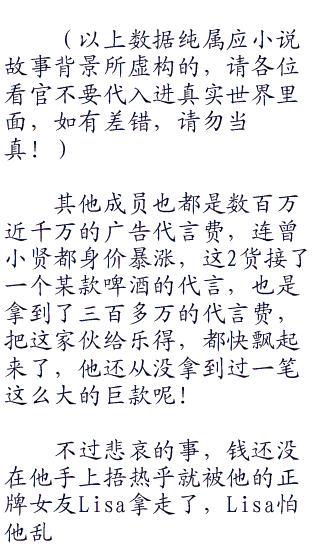 （以上数据纯属应小说
故事背景所虚构的，请各位
看官不要代入进真实世界里
面，如有差错，请勿当
真！）
其他成员也都是数百万
近千万的广告代言费，连曾
小贤都身价暴涨，这2货接了
一个某款啤酒的代言，也是
拿到了三百多万的代言费，
把这家伙给乐得，都快飘起
来了，他还从没拿到过一笔
这么大的巨款呢！
不过悲哀的事，钱还没
在他手上捂热乎就被他的正
牌女友Lisa拿走了，Lisa怕
他乱